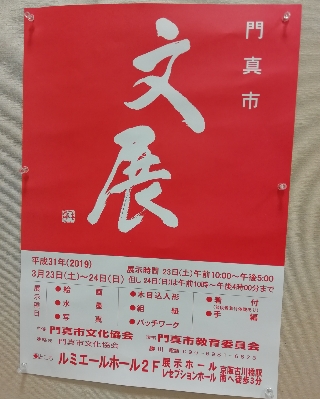 門真市
文展
平成31年(2019)
3月23日(土)〜24日(日)
展示時間 23日(土)午前10:00〜午後5:00
但し24日(日)は午前10時〜午後4時00分まで
展示種目
●絵画
●水墨
●写真
●木目込人形
●組紐
●パッチワーク
●着付
●手織
門真市文化協会
門真市教育委員会
門真市文化協会
ルミエールホール2F
展示ホール
レセプションホール
京阪古川橋駅
南へ徒歩3分